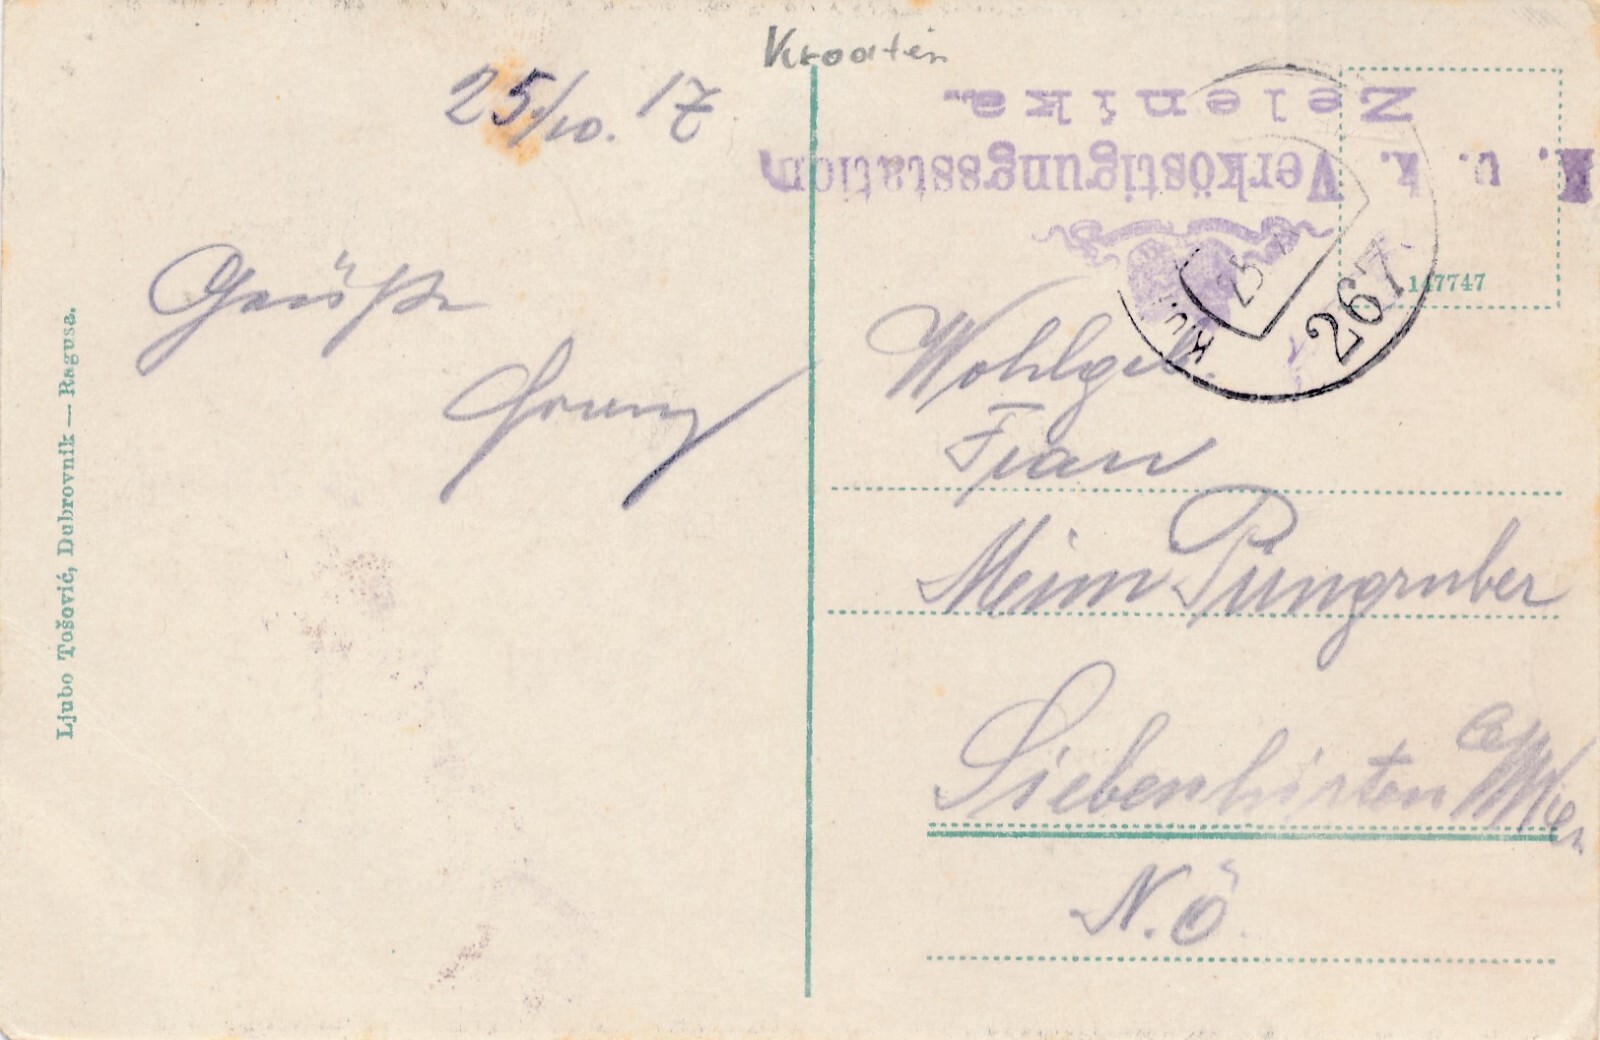 Kroatien
25/10. 17
K. u. k. Verköstigungsstation
Zelenika.
25
267
147747
Grüße
Franz
Wohlgeb.
Frau
Pungruber
Siebenhirten
Wien
N.Ö.
Ljubo Tošović, Dubrovnik — Ragusa.